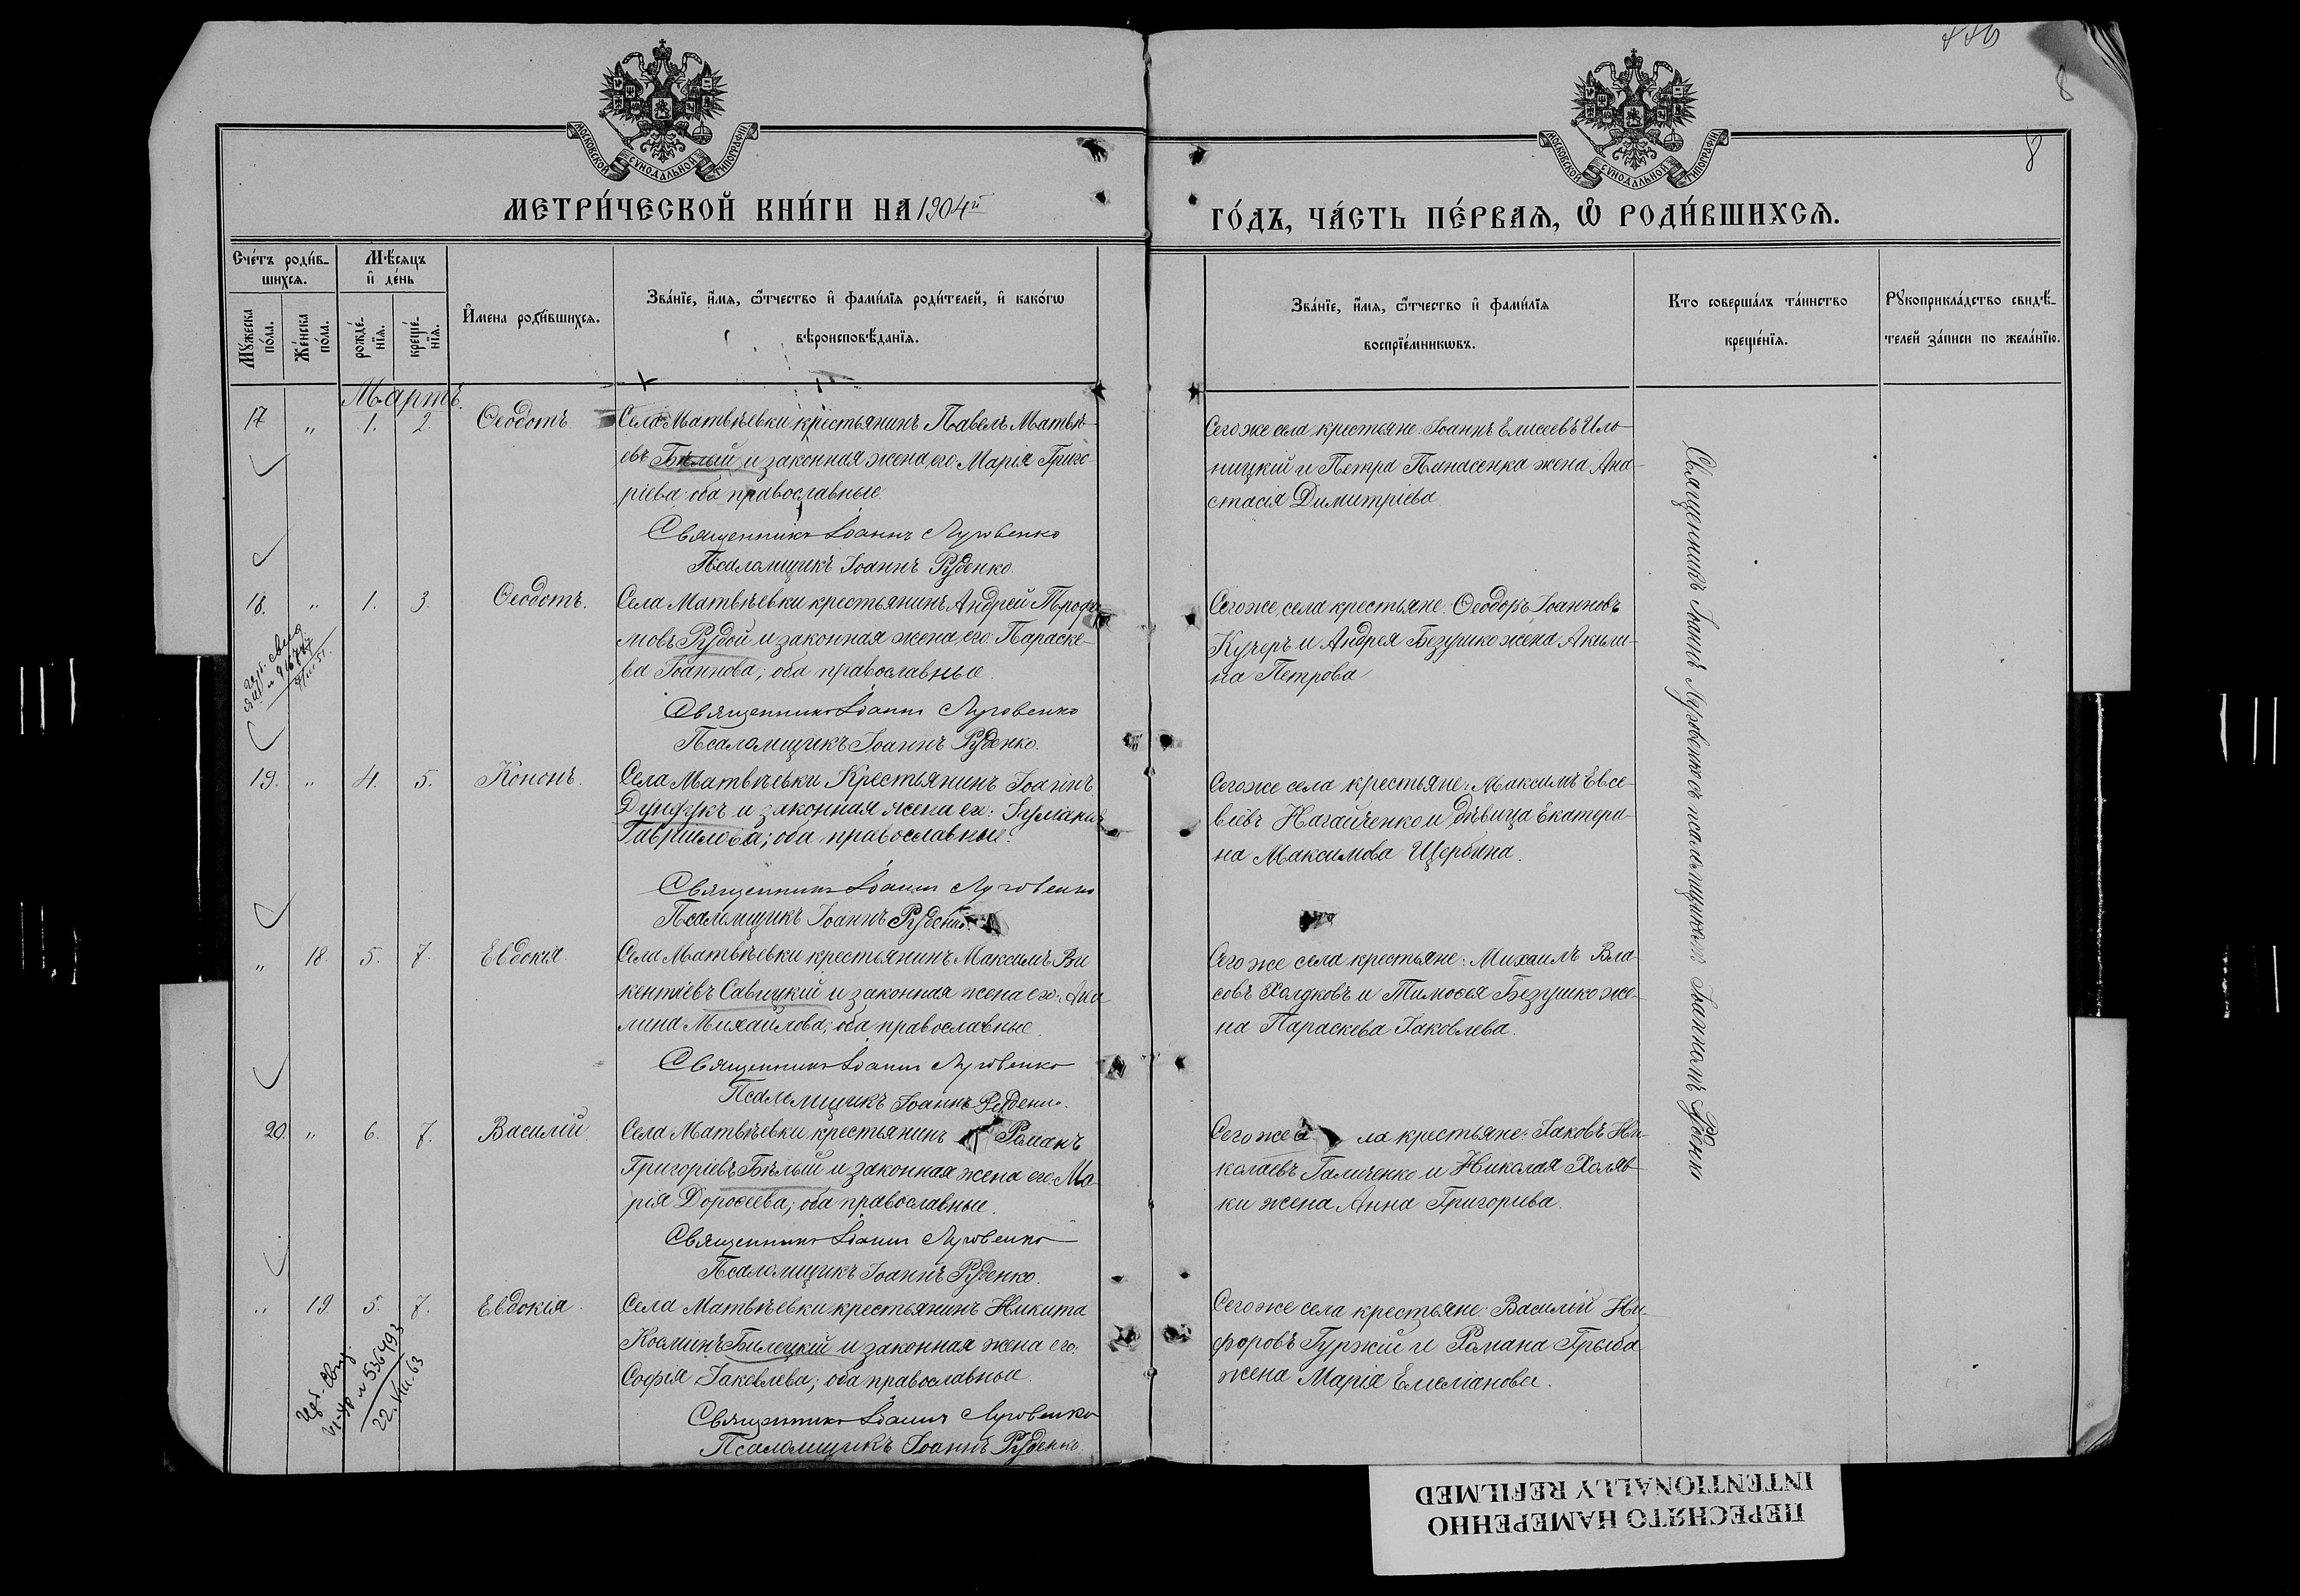 446
8
8
МОСКОВСКОЙ СУНОДАЛЬНОЙ ТИПОГРАФІИ
МОСКОВСКОЙ СУНОДАЛЬНОЙ ТИПОГРАФІИ
МЕТРИ́ЧЕСКОЙ КНИ́ГИ НА 1904й
ГО́ДЪ, ЧА́СТЬ ПЕ́РВАѦ, Ѽ РОДИ́ВШИХСѦ.
Сче́тъ роди́в-
шихсѧ.
Мꙋ́жеска
по́ла.
Же́нска
по́ла.
Мѣ́сѧцъ
и҆ де́нь
рожде́-
нїѧ.
креще́-
нїѧ.
И҆мена̀ роди́вшихсѧ.
Зва́нїе, и҆́мѧ, ѻ҆́тчество и҆ фами́лїѧ роди́телей, и҆ како́гѡ
вѣроисповѣ́данїѧ.
Зва́нїе, и҆́мѧ, ѻ҆́тчество и҆ фами́лїѧ
воспрїе́мникѡвъ.
Кто̀ соверша́лъ та́инство
креще́нїѧ.
Рꙋкоприкла́дство свидѣ́-
телей за́писи по жела́нїю.
Мартъ.
17 „ 1. 2. Ѳеодотъ
Села Матвѣевки крестьянинъ Павелъ Матвѣ-
евъ Бѣлый и законная жена его Марія Григо-
ріева оба православные.
Священникъ Іоаннъ Луговенко
Псаломщикъ Іоаннъ Руденко.
Сегоже села крестьяне: Іоаннъ Елисеевъ Иль-
ницкій и Петра Панасенка жена Ана-
стасія Димитріева
18. „ 1. 3. Ѳеодотъ.
Села Матвѣевки крестьянинъ Андрей Трофи-
мовъ Рудой и законная жена его Параске-
ва Іоаннова; оба православные.
Священникъ Іоаннъ Луговенко
Псаломщикъ Іоаннъ Руденко.
Сегоже села крестьяне: Ѳеодоръ Іоанновъ
Кучеръ и Андрея Безушко жена Акили-
на Петрова
19. „ 4. 5. Кононъ.
Села Матвѣевки Крестьянинъ Іоаннъ
Дундукъ и законная жена его: Іуліанія
Гавріилова; оба православные.
Священникъ Іоаннъ Луговенко
Псаломщикъ Іоаннъ Руденко
Сегоже села крестьяне: Максимъ Евсе-
віевъ Нагайченко и дѣвица Екатери-
на Максимова Щербина.
„ 18. 5. 7. Евдокія.
Села Матвѣевки крестьянинъ Максимъ Ви
кентіевъ Савицкій и законная жена его: Аки-
лина Михайлова; оба православные.
Священникъ Іоаннъ Луговенко
Псаломщикъ Іоаннъ Руденко.
Сегоже села крестьяне: Михаилъ Вла-
совъ и Тимоѳея Безушко же-
на Параскева Іаковлева.
20. „ 6. 7. Василій.
Села Матвѣевки крестьянинъ Романъ
Григоріевъ Бѣлый и законная жена его Ма-
рія Дороѳеева; оба православные.
Священникъ Іоаннъ Луговенко
Псаломщикъ Іоаннъ Руденко.
Сегоже села крестьяне: Іаковъ Ни-
колаевъ Галиченко и Николая Холяв-
ки жена Анна Григорьева.
„ 19. 5. 7. Евдокія.
Села Матвѣевки крестьянинъ Никита
Косминъ Билецкій и законная жена его:
Софія Іаковлева; оба православные.
Священникъ Іоаннъ Луговенко
Псаломщикъ Іоаннъ Руденко.
Сегоже села крестьяне: Василій Ни-
форовъ Гуржій и Романа Грыба
жена Марія Емеліанова.
22.VIII.63
Священникъ Іоаннъ Луговенко съ псаломщикомъ Іоанномъ Руденко
ПЕРЕСНЯТО НАМЕРЕННО
INTENTIONALLY REFILMED